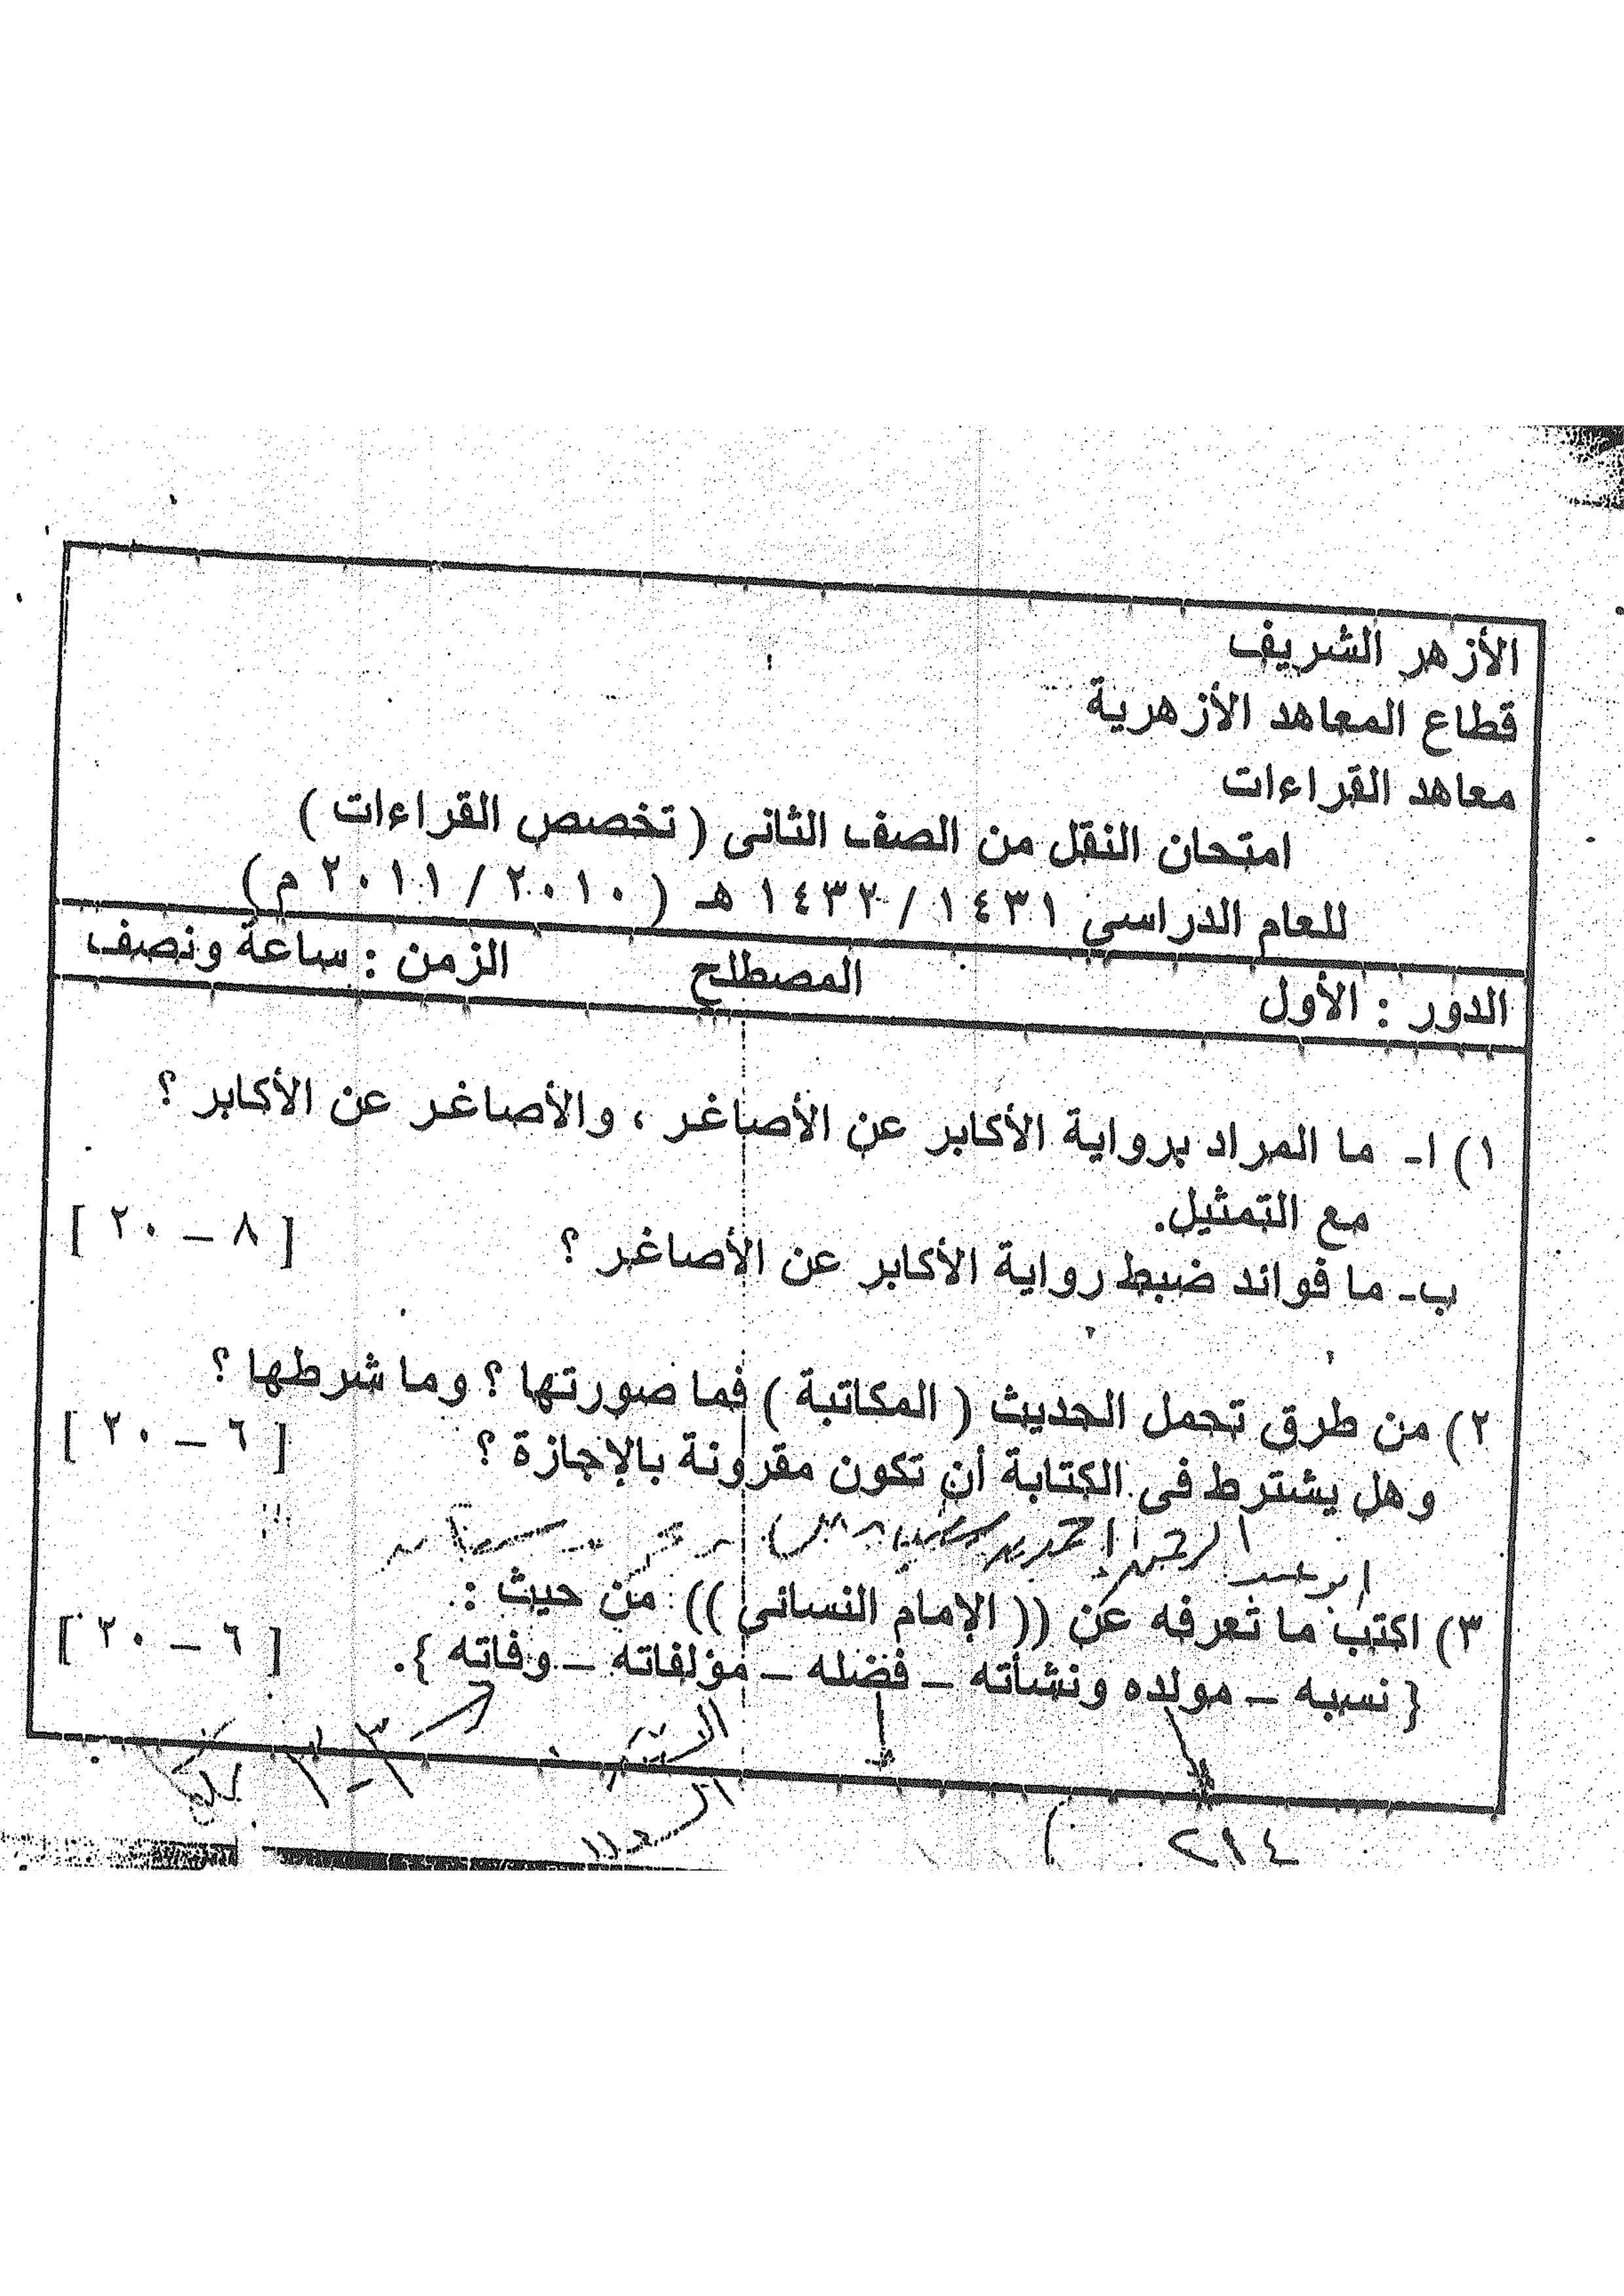 الأزهر الشريف
قطاع المعاهد الأزهرية
معاهد القراءات
امتحان النقل من الصف الثانى ( تخصص القراءات )
للعام الدراسي ١٤٣١ / ١٤٣٢ هـ ( ٢٠١٠ / ٢٠١١ م )
الدور : الأول المصطلح الزمن : ساعة ونصف
١) ا- ما المراد برواية الأكابر عن الأصاغر ، والأصاغر عن الأكابر ؟
مع التمثيل.
ب- ما فوائد ضبط رواية الأكابر عن الأصاغر ؟ [ ٨ – ٢٠ ]
٢) من طرق تحمل الحديث ( المكاتبة ) فما صورتها ؟ وما شرطها ؟
وهل يشترط فى الكتابة أن تكون مقرونة بالإجازة ؟ [ ٦ – ٢٠ ]
الرحمن أحمد
٣) اكتب ما تعرفه عن (( الإمام النسائى )) من حيث :
{ نسبه – مولده ونشأته – فضله – مؤلفاته – وفاته }. [ ٦ – ٢٠ ]
٣٠٣
السنن
٢١٤